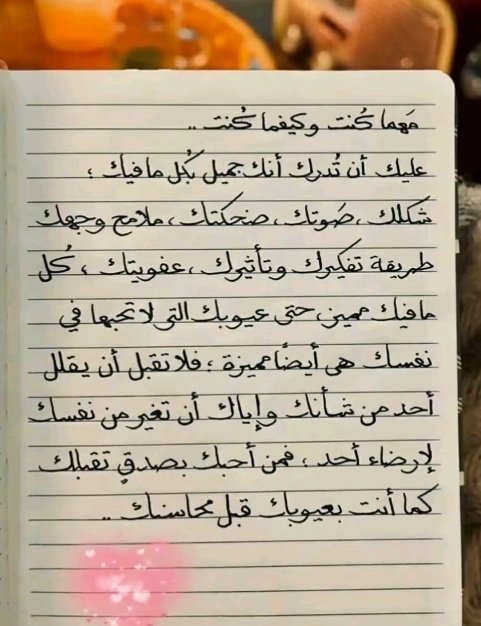 مَهما كُنت وكيفما كُنت ..
عليك أن تُدرك أنك جميل بكُل ما فيك ؛
شكلك ، صَوتك ، ضحكتك ، ملامح وجهك
طريقة تفكيرك وتأثيرك ، عفويتك ، كُل
ما فيك مميز ، حتى عيوبك التي لا تحبها في
نفسك هي أيضًا مميزة ؛ فلا تقبل أن يقلل
أحد من شأنك وإياك أن تغير من نفسك
لإرضاء أحد ، فمن أحبك بصدقٍ تقبلك
كما أنت بعيوبك قبل محاسنك ..